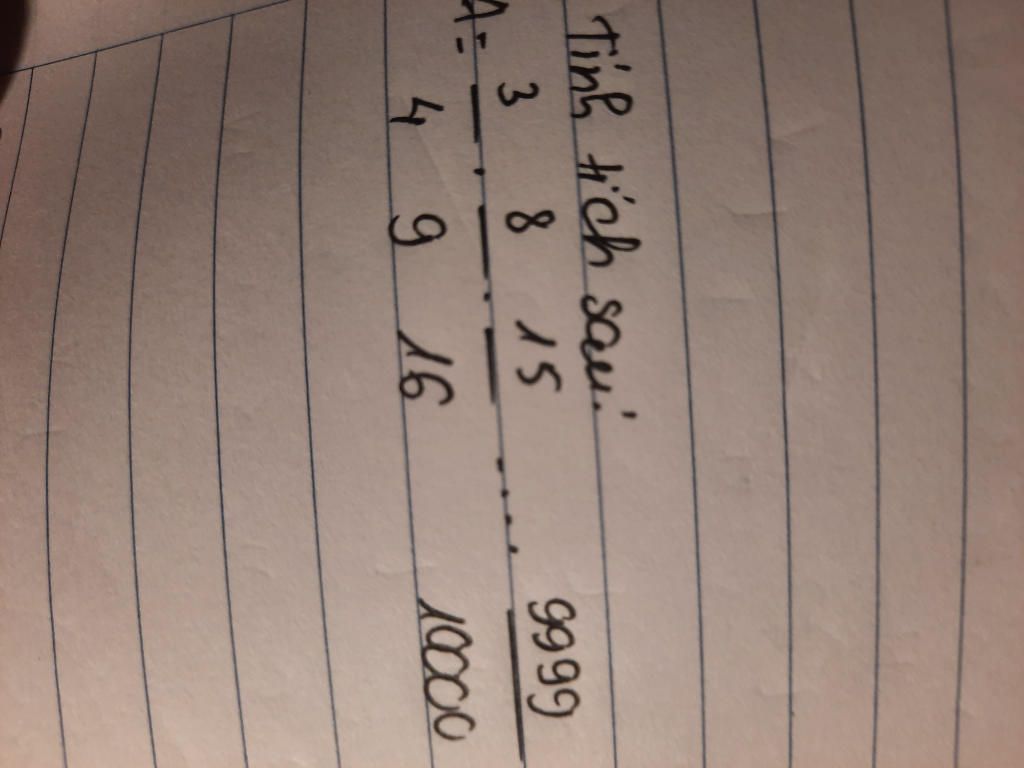 Tính tích sau:
A = 3/4 . 8/9 . 15/16 .... 9999/10000